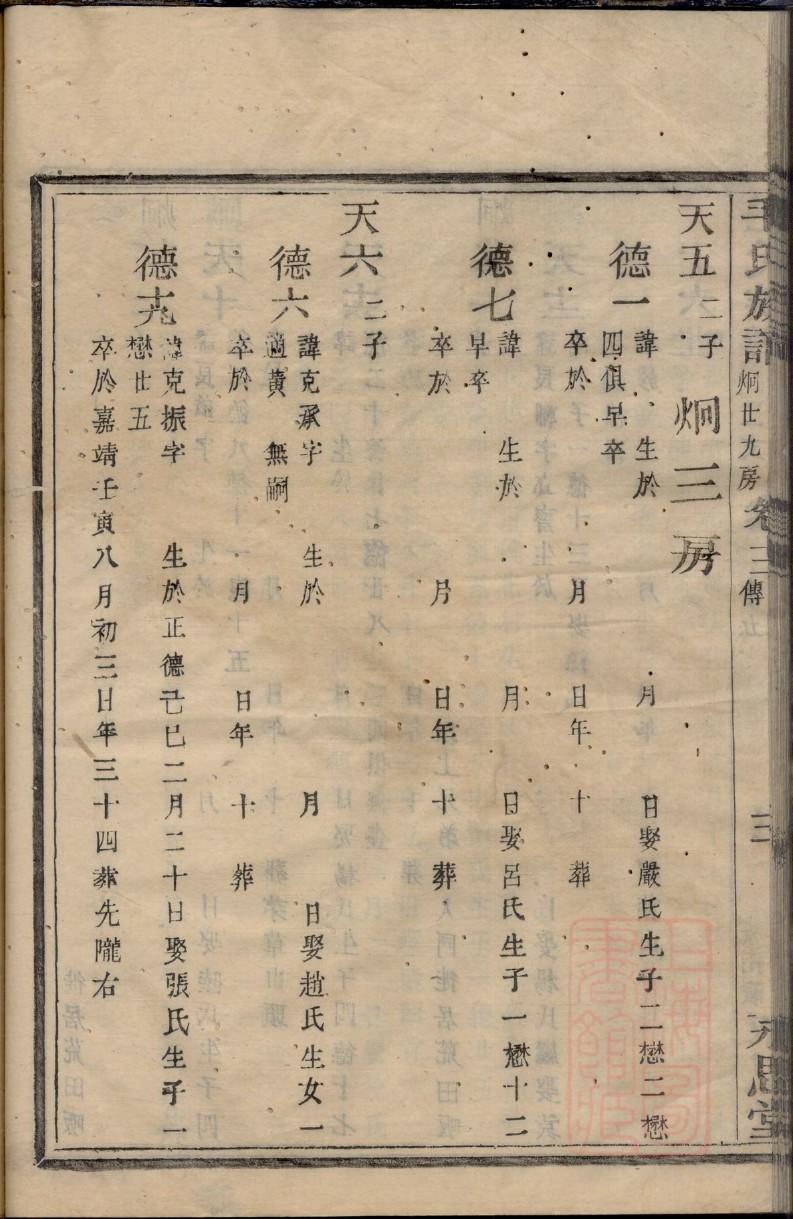 毛氏族譜 炯廿九房 卷三 傳 三 永思堂
天五 二子 炯三房
德一 諱 生於 月 日娶嚴氏生子二懋二懋
四俱早卒
卒於 月 日年 十 葬
德七 諱 生於 月 日娶呂氏生子一懋十二
早卒
卒於 月 日年 十 葬
天六 二子
德六 諱克承字 生於 月 日娶趙氏生女一
適黃 無嗣
卒於 月 日年 十 葬
德 諱克振字 生於正德己巳二月二十日娶張氏生子一
懋廿五
卒於嘉靖壬寅八月初三日年三十四葬先隴右